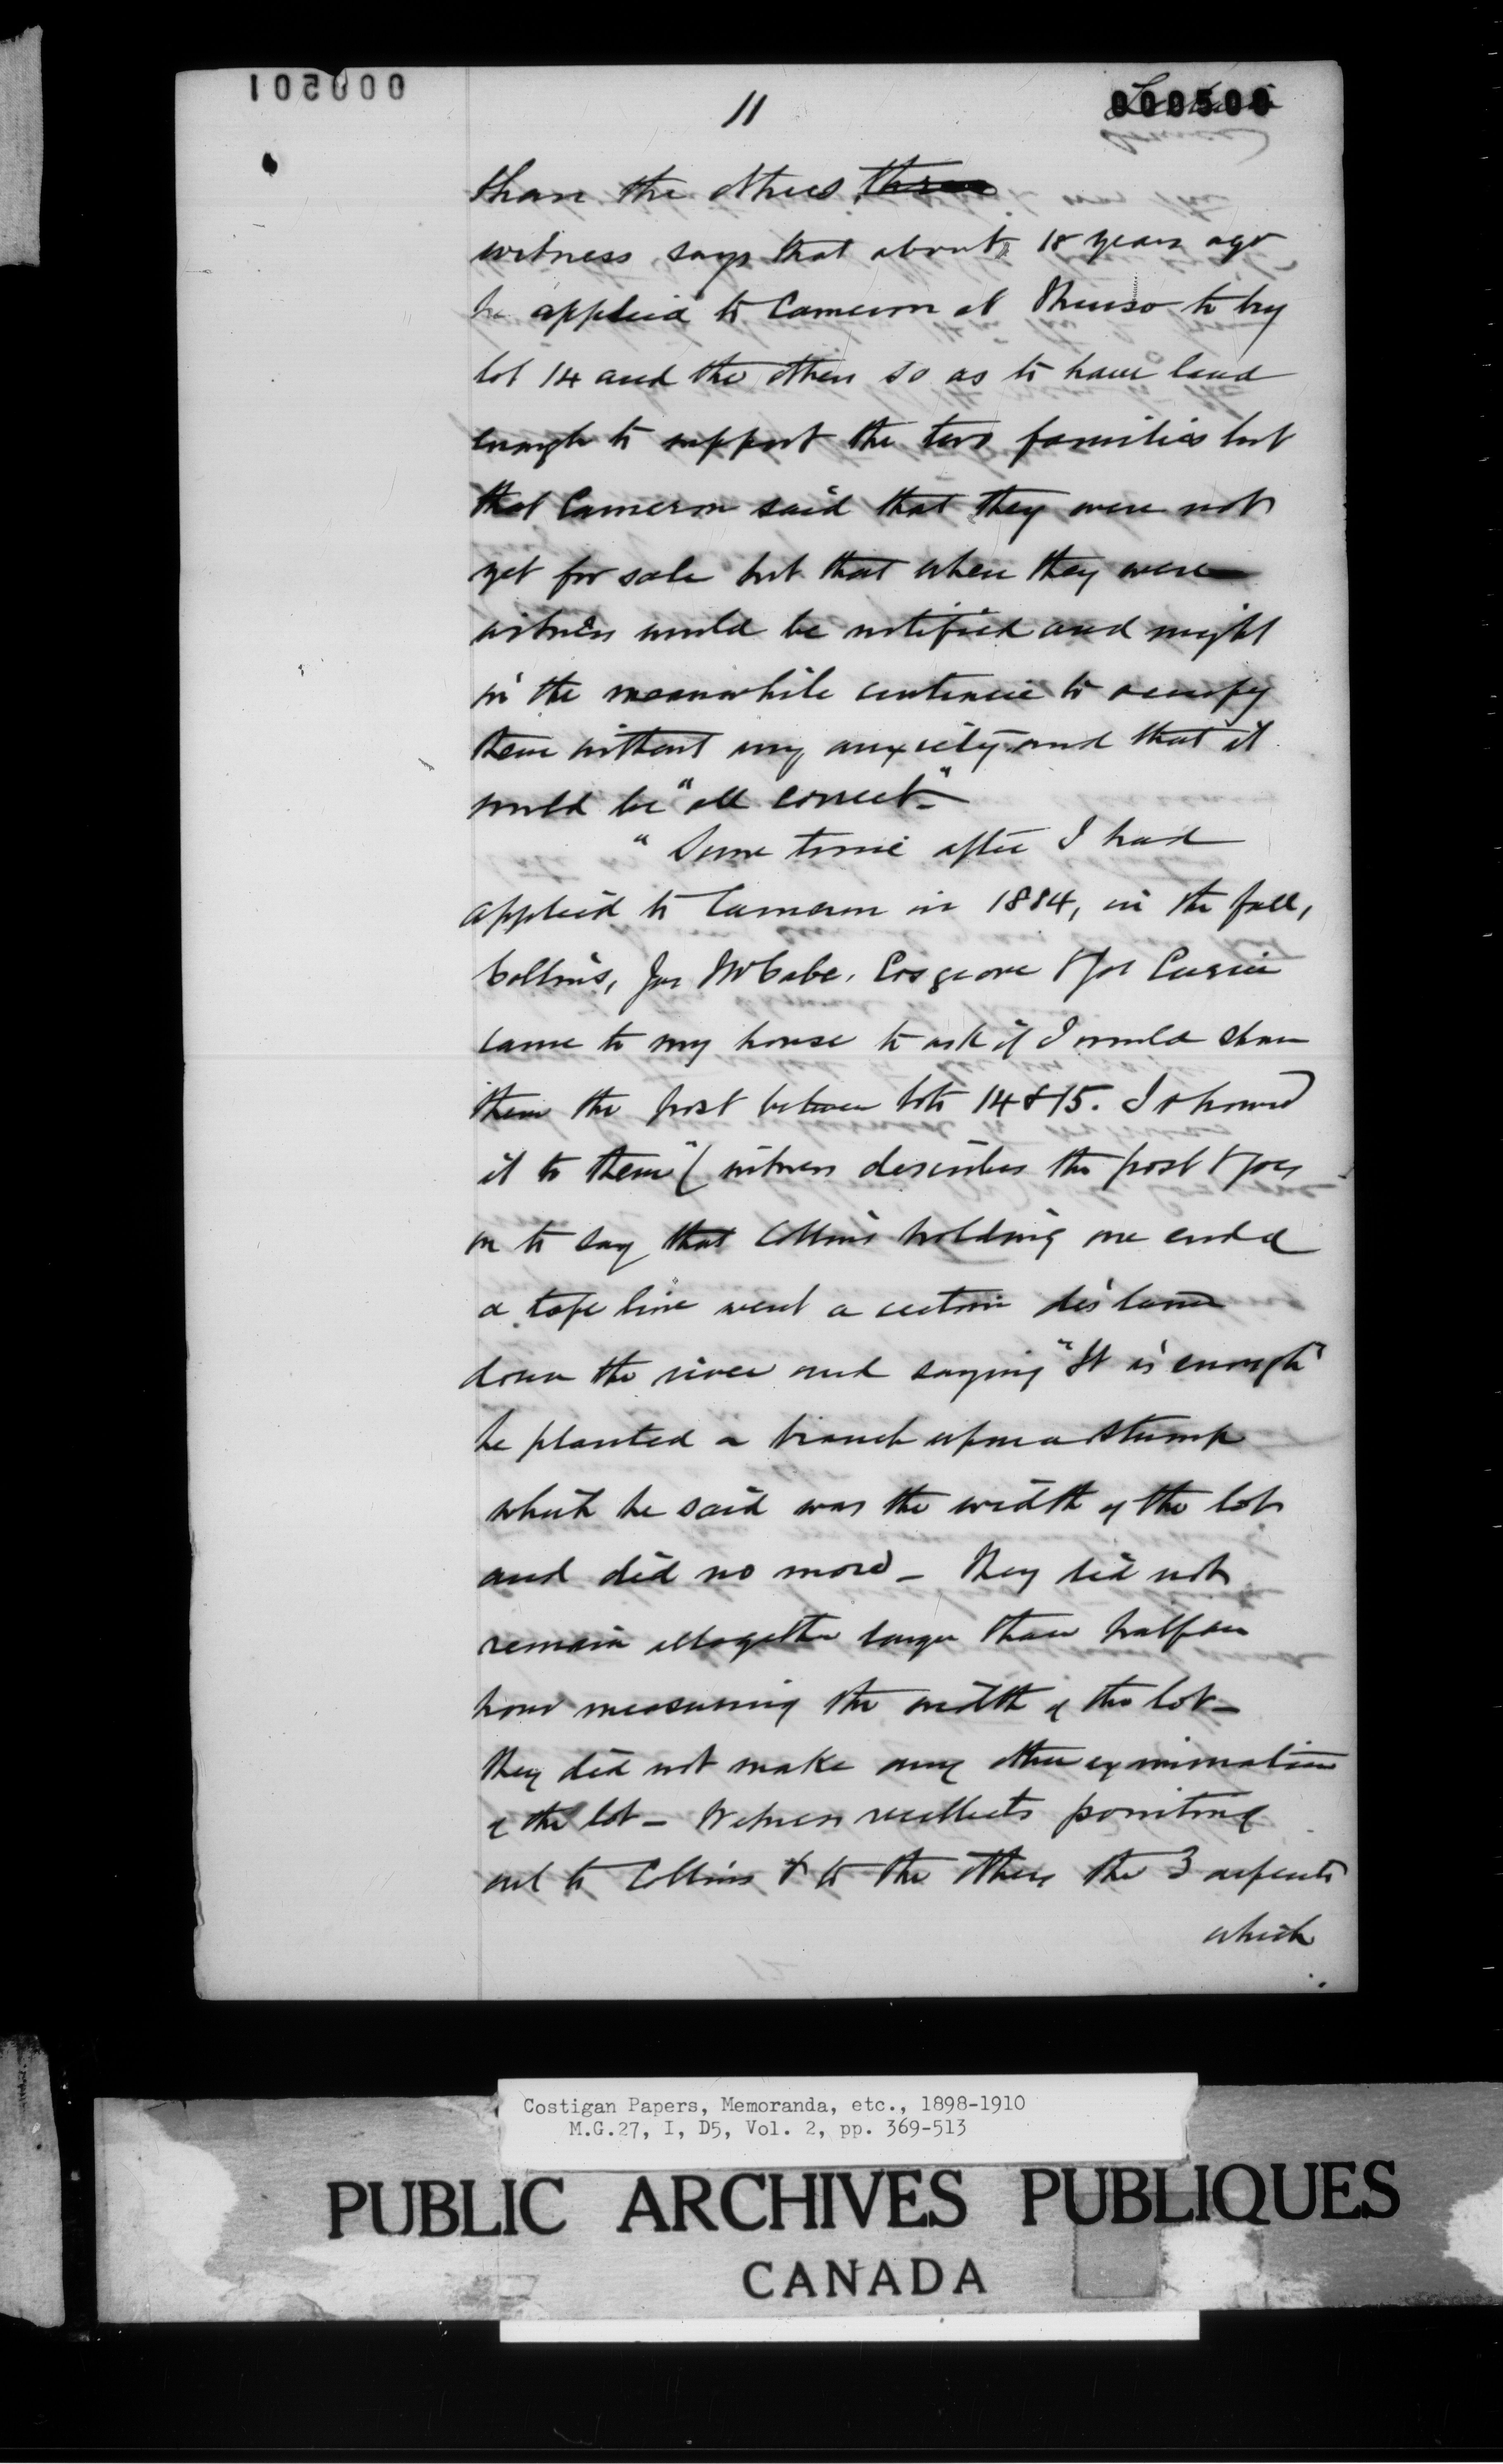 11
000500
than the others, three
witness says that about 18 years ago
he applied to Cameron at Thurso to buy
lot 14 and the others so as to have land
enough to support the two families but
that Cameron said that they were not
yet for sale but that when they were
witness would be notified and might
in the meanwhile continue to occupy
them without any anxiety and that it
would be "all correct."
"Some time after I had
applied to Cameron in 1884, in the fall,
Collins, Jas McCabe, Cosgrove & Jos
came to my house to ask if I would show
them the post between lots 14 & 15. I showed
it to them" (witness describes the post & goes
on to say that Collins holding one end of
a "tape line" went a certain distance
down the river and saying "It is enough"
he planted a branch upon a stump
which he said was the width of the lot
and did no more - They did not
remain altogether longer than half an
hour measuring the width of the lot -
they did not make any other examination
of the lot - Witness recollects pointing
out to Collins & to the others the 3 arpents
which
Costigan Papers, Memoranda, etc., 1898-1910
M.G.27, I, D5, Vol. 2, pp. 369-513
PUBLIC ARCHIVES PUBLIQUES
CANADA